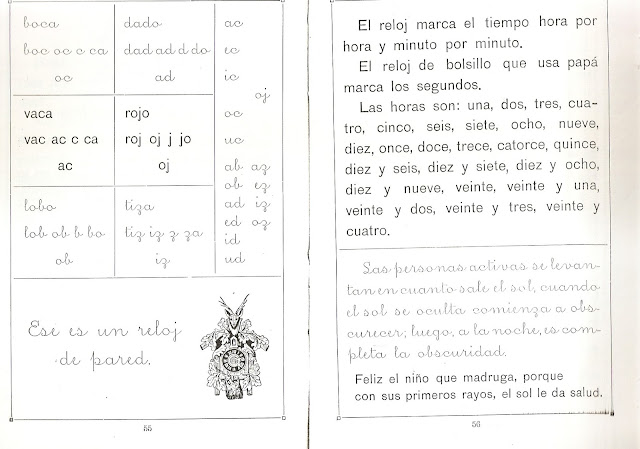 boca
boc oc c ca
oc
dado
dad ad d do
ad
vaca
vac ac c ca
ac
rojo
roj oj j jo
oj
lobo
lob ob b bo
ob
tiza
tiz iz z za
iz
ac
ec
ic
oj
oc
uc
ab az
ob ez
ad iz
ed oz
id
ud
Ese es un reloj
de pared.
55
El reloj marca el tiempo hora por
hora y minuto por minuto.
El reloj de bolsillo que usa papá
marca los segundos.
Las horas son: una, dos, tres, cua-
tro, cinco, seis, siete, ocho, nueve,
diez, once, doce, trece, catorce, quince,
diez y seis, diez y siete, diez y ocho,
diez y nueve, veinte, veinte y una,
veinte y dos, veinte y tres, veinte y
cuatro.
Las personas activas se levan-
tan en cuanto sale el sol, cuando
el sol se oculta comienza a obs-
curecer; luego, a la noche, es com-
pleta la obscuridad.
Feliz el niño que madruga, porque
con sus primeros rayos, el sol le da salud.
56